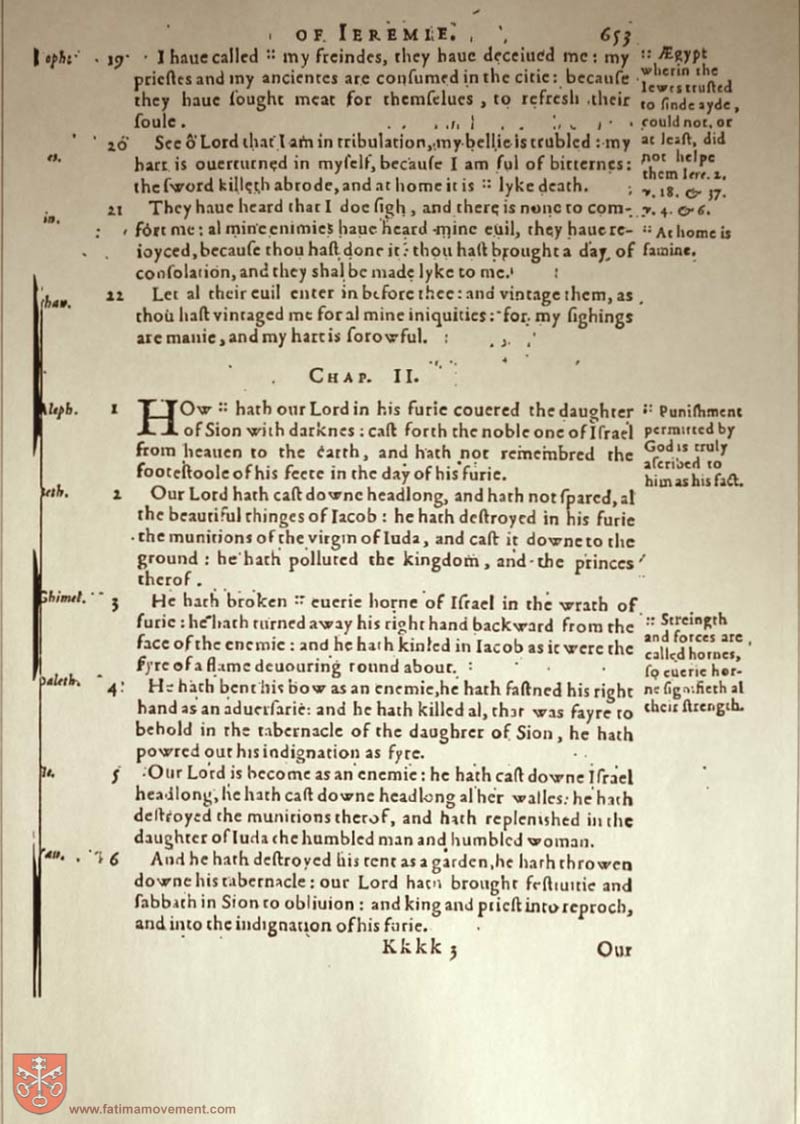 OF IEREMIE. 653
ophe 19 I haue called :: my freindes, they haue deceiued me: my
prieſtes and my ancientes are conſumed in the citie: becauſe
they haue ſought meat for themſelues, to refresh their
ſoule.
es. 20 See ô Lord that I am in tribulation, my bellie is trubled: my
hart is ouerturned in myſelf, becauſe I am ful of bitternes:
the ſword killeth abrode, and at home it is :: lyke death.
in. 21 They haue heard that I doe ſigh, and there is none to com-
fort me: al mine enimies haue heard mine euil, they haue re-
ioyced, becauſe thou haſt done it: thou haſt brought a day of
conſolation, and they shal be made lyke to me.
thau. 22 Let al their euil enter in before thee: and vintage them, as
thou haſt vintaged me for al mine iniquities: for my ſighings
are manie, and my hart is ſorowful.
:: Ægypt
wherin the
Iewes truſted
to finde ayde,
could not, or
at leaſt, did
not helpe
them Iere. 2.
v. 18. & 37.
v. 4. & 6.
:: At home is
famine.
CHAP. II.
Aleph. 1 HOw :: hath our Lord in his furie couered the daughter
of Sion with darknes: caſt forth the noble one of Iſrael
from heauen to the earth, and hath not remembred the
footeſtoole of his feete in the day of his furie.
:: Puniſhment
permitted by
God is truly
aſcribed to
him as his fact.
beth. 2 Our Lord hath caſt downe headlong, and hath not ſpared, al
the beautiful thinges of Iacob: he hath deſtroyed in his furie
the munitions of the virgin of Iuda, and caſt it downe to the
ground: he hath polluted the kingdom, and the princes
therof.
Ghimel. 3 He hath broken :: euerie horne of Iſrael in the wrath of
furie: he hath turned away his right hand backward from the
face of the enemie: and he hath kinled in Iacob as it were the
fyre of a flame deuouring round about.
:: Streingth
and forces are
called hornes,
ſo euerie hor-
ne ſignifieth al
their ſtrength.
daleth. 4 He hath bent his bow as an enemie, he hath faſtned his right
hand as an aduerſarie: and he hath killed al, that was fayre to
behold in the tabernacle of the daughter of Sion, he hath
powred out his indignation as fyre.
he. 5 Our Lord is become as an enemie: he hath caſt downe Iſrael
headlong, he hath caſt downe headlong al her walles: he hath
deſtroyed the munitions therof, and hath replenished in the
daughter of Iuda the humbled man and humbled woman.
vau. 6 And he hath deſtroyed his tent as a garden, he hath throwen
downe his tabernacle: our Lord hath brought feſtiuitie and
ſabbath in Sion to obliuion: and king and prieſt into reproch,
and into the indignation of his furie.
Kkkk 3 Our
www.fatimamovement.com